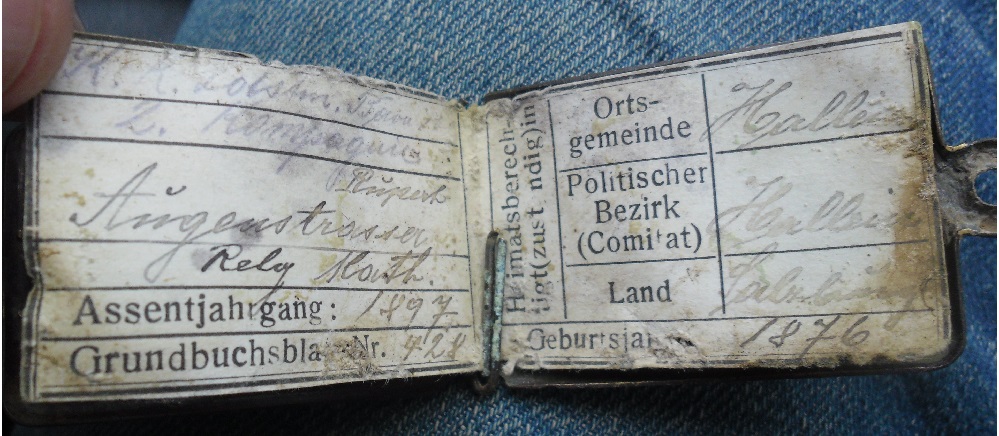 K. K. Ldstm. Baon
2. Kompagnie
Rupert
Augenstrasser
Relg Kath.
Assentjahrgang: 1897
Grundbuchsbla Nr. 428
Heimatsberech-
tigt(zust ndig)in
Orts-
gemeinde
Hallein
Politischer
Bezirk
(Comitat)
Hallein
Land
Salzburg
Geburtsja 1876